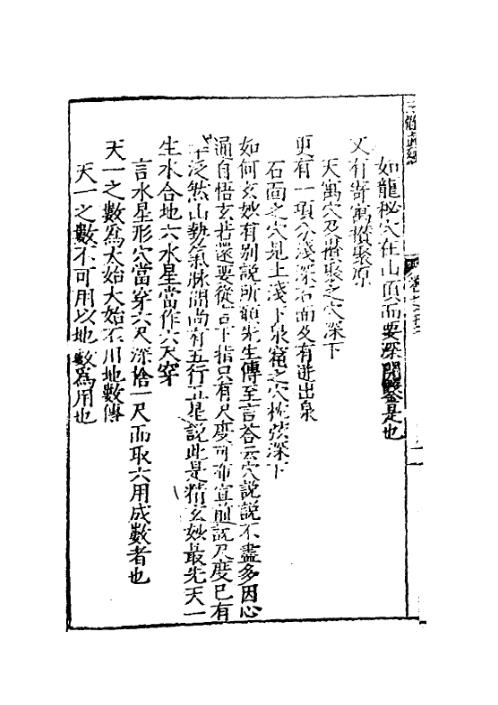 如龍秘穴在山頂而要深開鑿是也
又有寄寓攢聚原
天寓穴及攢聚之穴深下
更有一項分淺深石面及有迸出泉
石面之穴見土淺下泉竅之穴深下
如何玄妙有別說所願先生傳至言答云穴說說不盡多因心
通自悟玄若還要從言下指只有尺度可布宣前說尺度已有
泛然山勢氣脉間尚有五行星說此是精玄妙最先天一
生水合地六水星當作六尺穿
言水星形穴當穿六尺深恰一尺而取六用成數者也
天一之數為太始太始不用地數傳
天一之數不可用以地數為用也